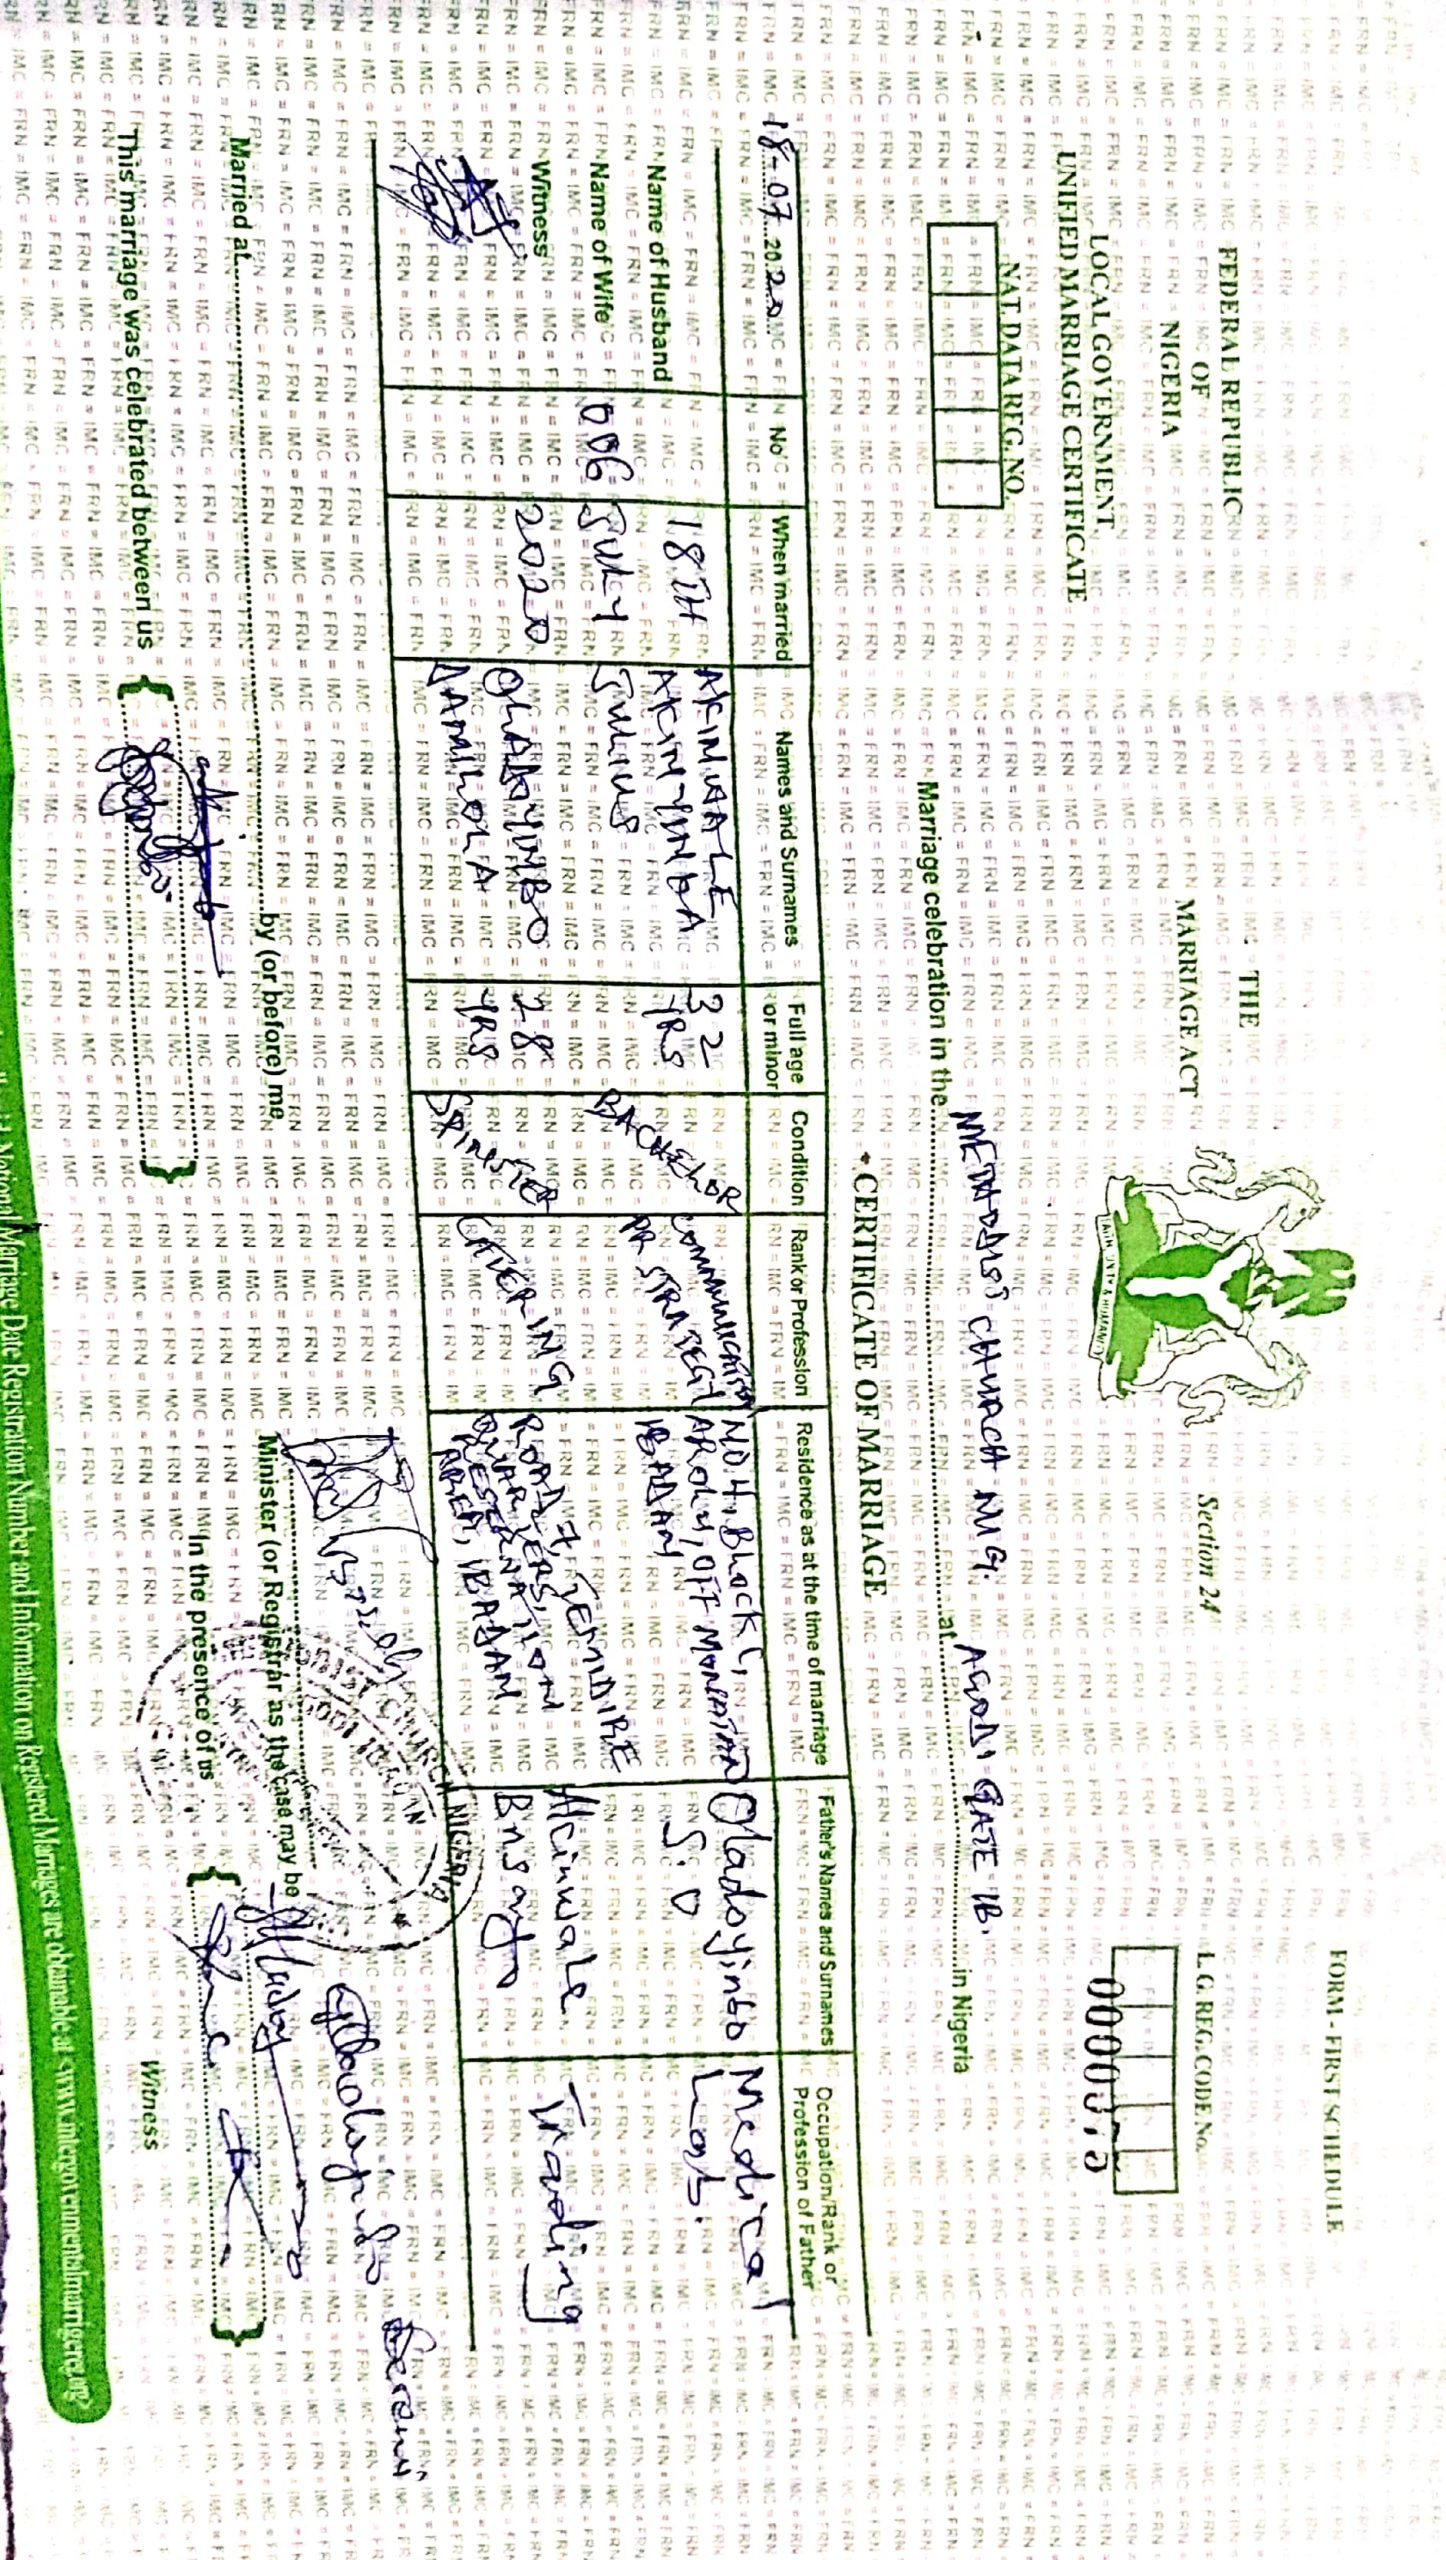 FORM - FIRST SCHEDULE
FEDERAL REPUBLIC
OF
NIGERIA
THE
MARRIAGE ACT
Section 24
L.G. REG. CODE No.
LOCAL GOVERNMENT
UNIFIED MARRIAGE CERTIFICATE
UNITY &
0000375
NAT DATA REG. NO.
Marriage celebration in the METHODIST CHURCH NIG. at AGODI GATE IB. in Nigeria
CERTIFICATE OF MARRIAGE
18-07 2020
No
When married
Names and Surnames
Full age or minor
Condition
Rank or Profession
Residence as at the time of marriage
Father's Names and Surnames
Occupation/Rank or Profession of Father
Name of Husband
Name of Wife
Witness
006
18TH
JULY
2020
AKINWALE
AKINYINKA
JULIUS
OLADOYINBO
DAMILOLA
32
YRS
28
YRS
BACHELOR
SPINSTER
COMMUNICATION
PR STRATEGY
CATERING
NO 4, BLOCK C,
AROLU, OFF MONATAN
IBADAN
ROAD 7, TEMIDIRE
AREA, IBADAN
Oladoyinbo
S.O
Akinwale
Medical
Lab.
Trading
METHODIST CHURCH NIGERIA
Married at by (or before) me
Minister (or Registrar as the case may be
This marriage was celebrated between us
In the presence of us
Witness
National Marriage Date Registration Number and Information on Registered Marriages are obtainable at <www.intergovernmentalmarrigerez.org>